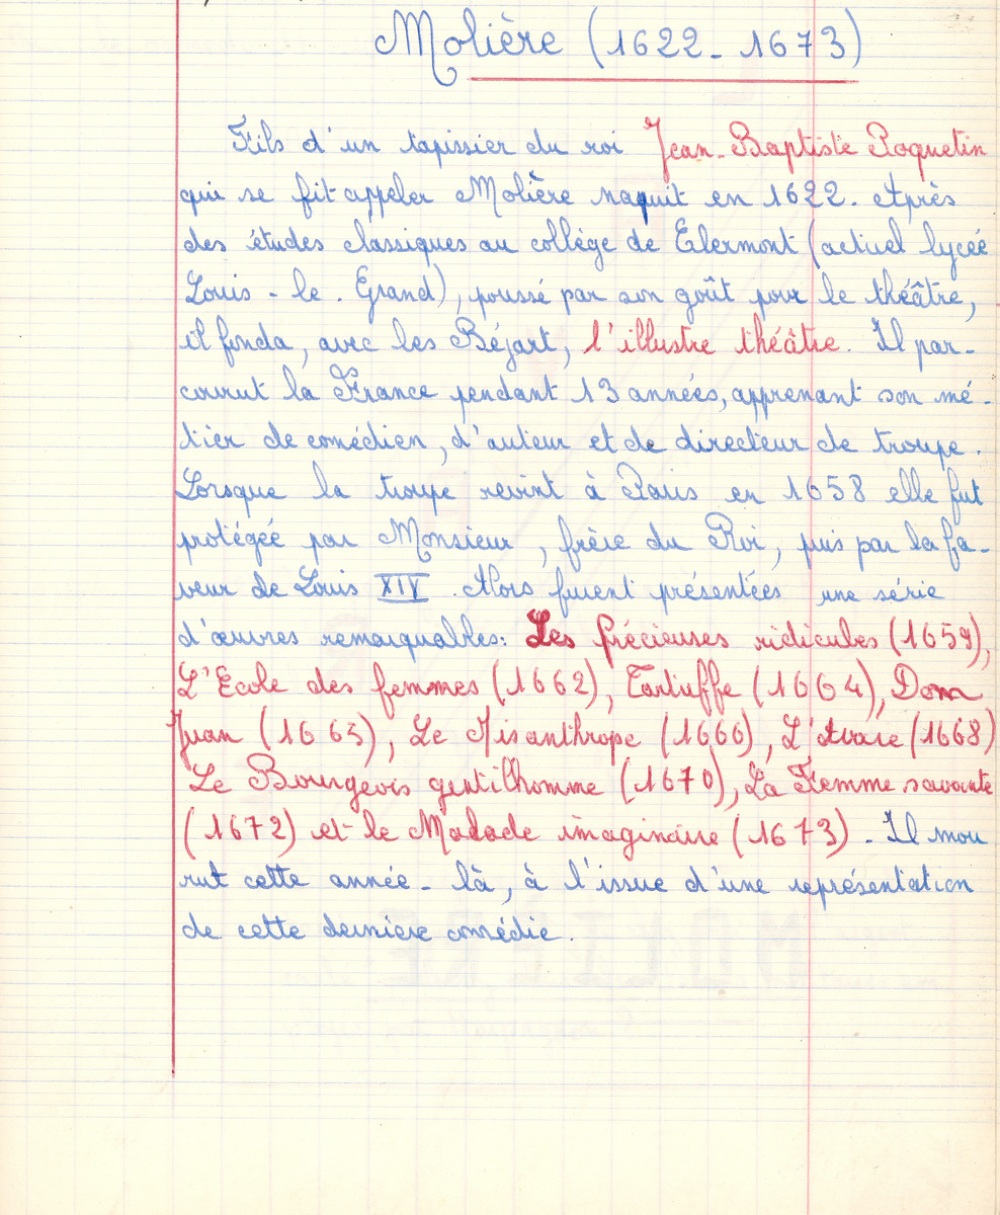 Molière (1622 - 1673)
Fils d'un tapissier du roi Jean-Baptiste Poquelin
qui se fit appeler Molière naquit en 1622. Après
des études classiques au collège de Clermont (actuel lycée
Louis - le . Grand), poussé par son goût pour le théâtre,
il fonda, avec les Béjart, l'illustre théâtre. Il par-
courut la France pendant 13 années, apprenant son mé-
tier de comédien, d'auteur et de directeur de troupe.
Lorsque la troupe revint à Paris en 1658 elle fut
protégée par Monsieur, frère du Roi, puis par la fa-
veur de Louis XIV. Alors furent présentées une série
d'œuvres remarquables: Les Précieuses ridicules (1659),
L'Ecole des femmes (1662), Tartuffe (1664), Dom
Juan (1665), Le Misanthrope (1666), L'Avare (1668)
Le Bourgeois gentilhomme (1670), La Femme savante
(1672) et le Malade imaginaire (1673). Il mou
rut cette année-là, à l'issue d'une représentation
de cette dernière comédie.